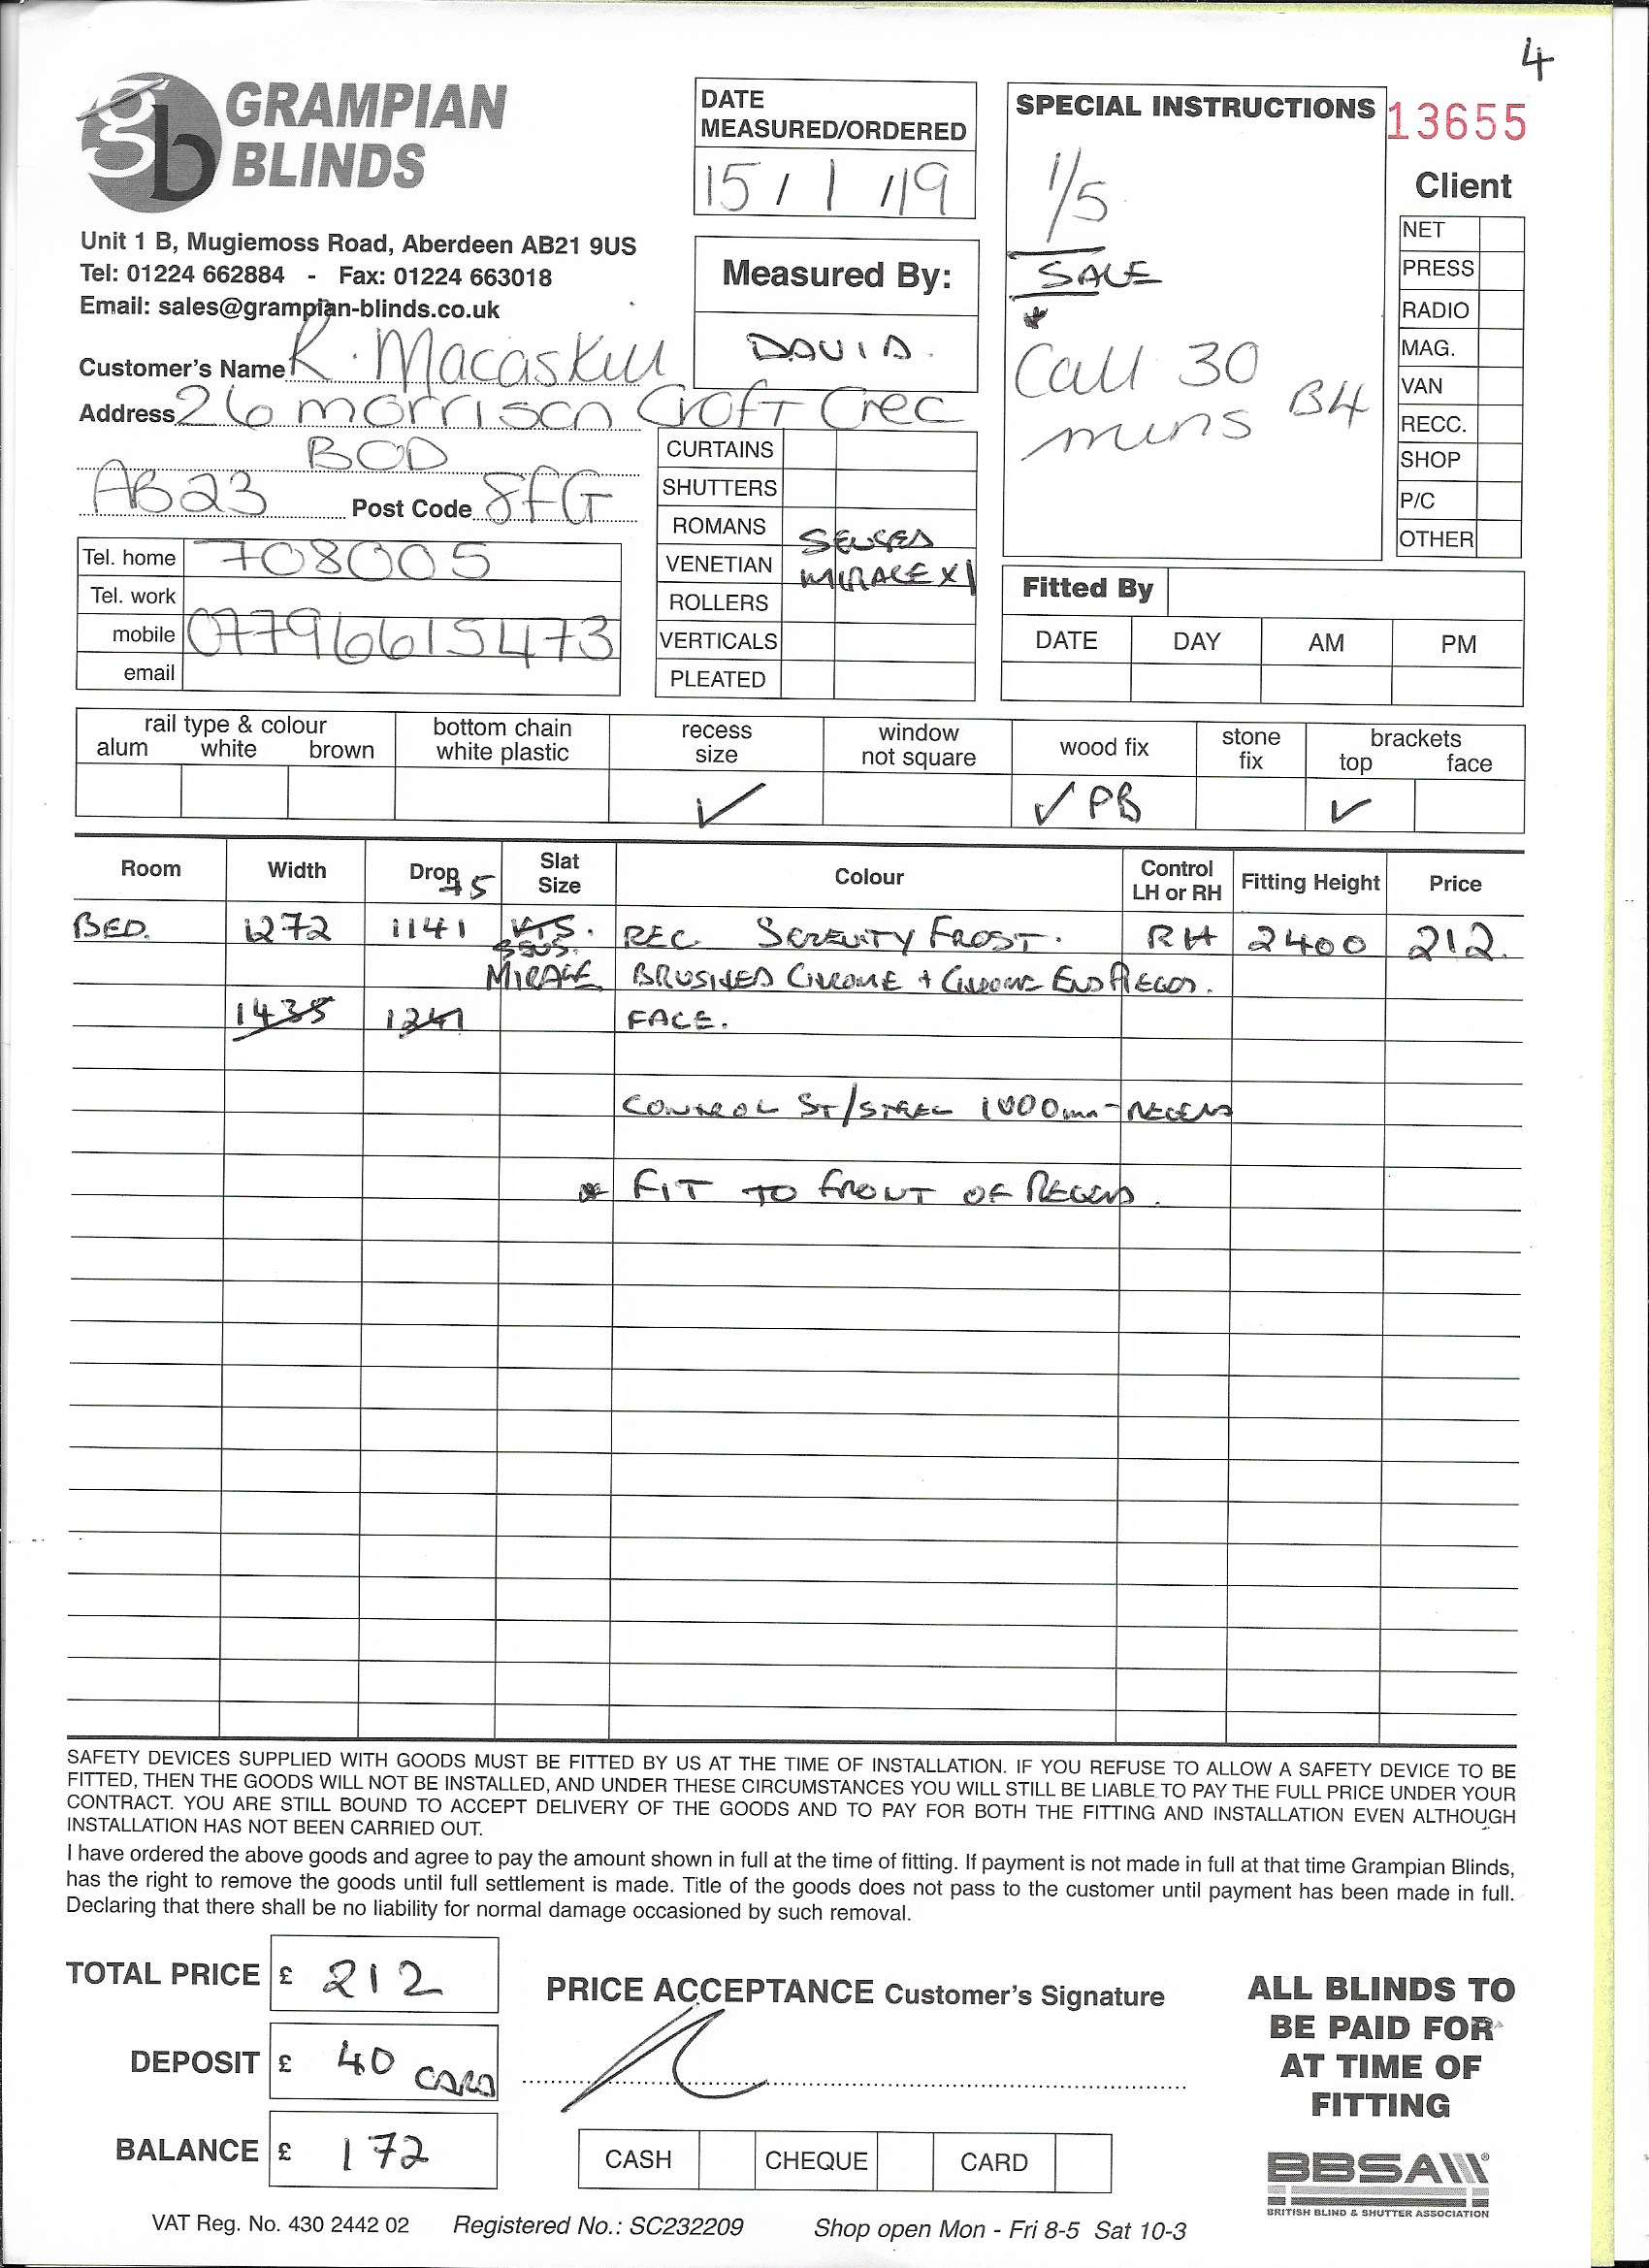 4
GRAMPIAN
BLINDS
Unit 1 B, Mugiemoss Road, Aberdeen AB21 9US
Tel: 01224 662884 - Fax: 01224 663018
Email: sales@grampian-blinds.co.uk
DATE
MEASURED/ORDERED
15 / 1 /19
Measured By:
DAVID.
SPECIAL INSTRUCTIONS
1/5
SALE
*
Call 30
mins B4
13655
Client
NET
PRESS
RADIO
MAG.
VAN
RECC.
SHOP
P/C
OTHER
Customer's Name K. Macaskill
Address 26 morrison Croft Crec
BOD
AB23 Post Code 8FG
Tel. home 708005
Tel. work
mobile 07796615473
email
CURTAINS
SHUTTERS
ROMANS
VENETIAN
ROLLERS
VERTICALS
PLEATED
SENSES
MIRAGE X1
Fitted By
DATE DAY AM PM
rail type & colour
alum white brown
bottom chain
white plastic
recess
size
window
not square
wood fix
stone
fix
brackets
top face
✓ ✓ PB ✓
Room Width Drop Slat Size Colour Control LH or RH Fitting Height Price
BED. 1272 1141 REC SERENITY FROST. RH 2400 212.
MIRAGE BRUSHED CHROME + CHROME END
1435 1241 FACE.
CONTROL ST/STEEL 1000mm - RECESS
* FIT TO FRONT OF RECESS.
SAFETY DEVICES SUPPLIED WITH GOODS MUST BE FITTED BY US AT THE TIME OF INSTALLATION. IF YOU REFUSE TO ALLOW A SAFETY DEVICE TO BE
FITTED, THEN THE GOODS WILL NOT BE INSTALLED, AND UNDER THESE CIRCUMSTANCES YOU WILL STILL BE LIABLE TO PAY THE FULL PRICE UNDER YOUR
CONTRACT. YOU ARE STILL BOUND TO ACCEPT DELIVERY OF THE GOODS AND TO PAY FOR BOTH THE FITTING AND INSTALLATION EVEN ALTHOUGH
INSTALLATION HAS NOT BEEN CARRIED OUT.
I have ordered the above goods and agree to pay the amount shown in full at the time of fitting. If payment is not made in full at that time Grampian Blinds,
has the right to remove the goods until full settlement is made. Title of the goods does not pass to the customer until payment has been made in full.
Declaring that there shall be no liability for normal damage occasioned by such removal.
TOTAL PRICE £ 212
DEPOSIT £ 40 CARD
BALANCE £ 172
PRICE ACCEPTANCE Customer's Signature
CASH CHEQUE CARD
ALL BLINDS TO
BE PAID FOR
AT TIME OF
FITTING
BBSA
BRITISH BLIND & SHUTTER ASSOCIATION
VAT Reg. No. 430 2442 02 Registered No.: SC232209 Shop open Mon - Fri 8-5 Sat 10-3